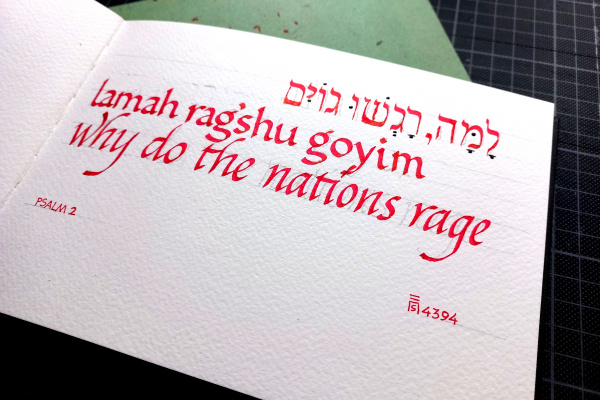 לָמָּה, רָגְשׁוּ גוֹיִם
lamah ragshu goyim
why do the nations rage
PSALM 2
4394